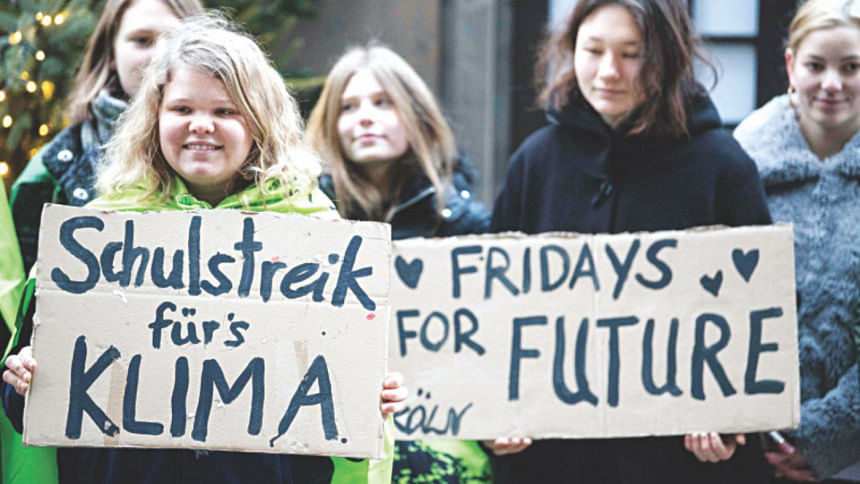 Schulstreik
für's
KLIMA.
FRIDAYS
FOR FUTURE
KÖLN